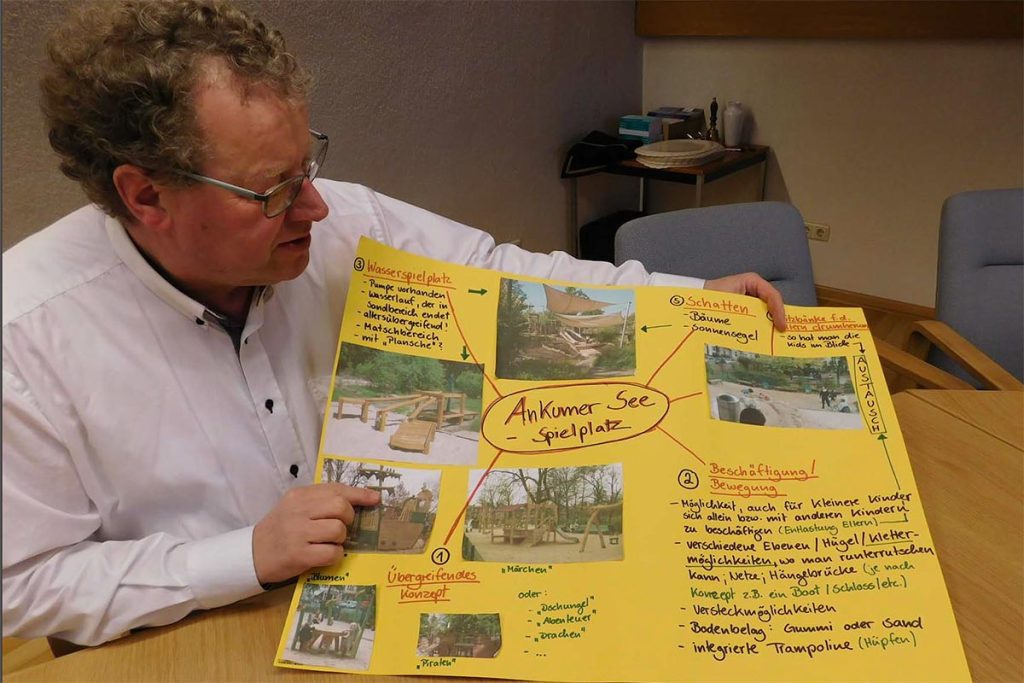 ③ Wasserspielplatz
- Pumpe vorhanden
- Wasserlauf, der in
Sandbereich endet
- allersübergreifend!
- Matschbereich
- mit "Plansche"?
⑤ Schatten
- Bäume
- Sonnensegel
itzbänke f.d.
ltern drumherum
- so hat man die
Kids im Blick
AUSTAUSCH
Ankumer See
- Spielplatz
② Beschäftigung/
Bewegung
- Möglichkeit, auch für kleinere Kinder
sich allein bzw. mit anderen Kindern
zu beschäftigen (Entlastung Eltern)
- verschiedene Ebenen/Hügel/Kletter-
möglichkeiten, wo man runterrutschen
kann; Netze; Hängebrücke (je nach
Konzept z.B. ein Boot/Schloss/etc.)
- Versteckmöglichkeiten
- Bodenbelag: Gummi oder Sand
- integrierte Trampoline (Hüpfen)
①
Übergreifendes
Konzept
"Blumen"
"Märchen"
"Piraten"
oder:
- "Dschungel"
- "Abenteuer"
- "Drachen"
- ...